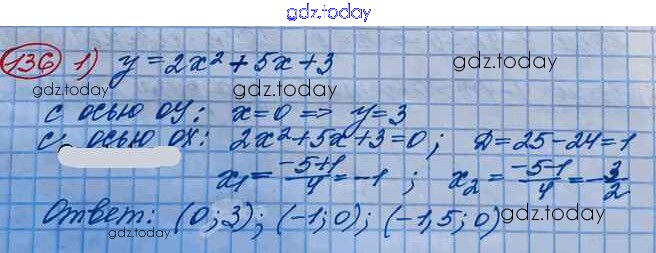 gdz.today
136 1) y = 2x² + 5x + 3
gdz.today
gdz.today
с осью оу: x=0 => y=3
с осью ох: 2x²+5x+3=0; D=25-24=1
gdz.today
x₁ = (-5+1)/4 = -1 ; x₂ = (-5-1)/4 = -3/2
Ответ: (0; 3); (-1; 0); (-1,5; 0)
gdz.today
gdz.today